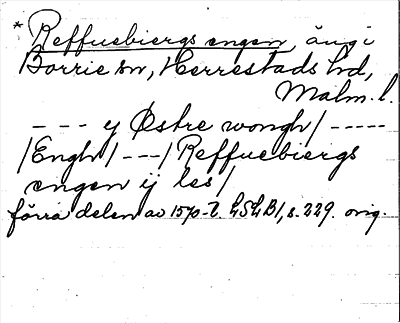 * Reffuebiergs engen, äng i
Borrie sn, Herrestads hd,
Malm. l.
- - - y Østre wongh/ - - - - -
/Engh/ - - -/ Reffuebiergs
engen ij les/
förra delen av 1570-t. LSLB1, s. 229. orig.